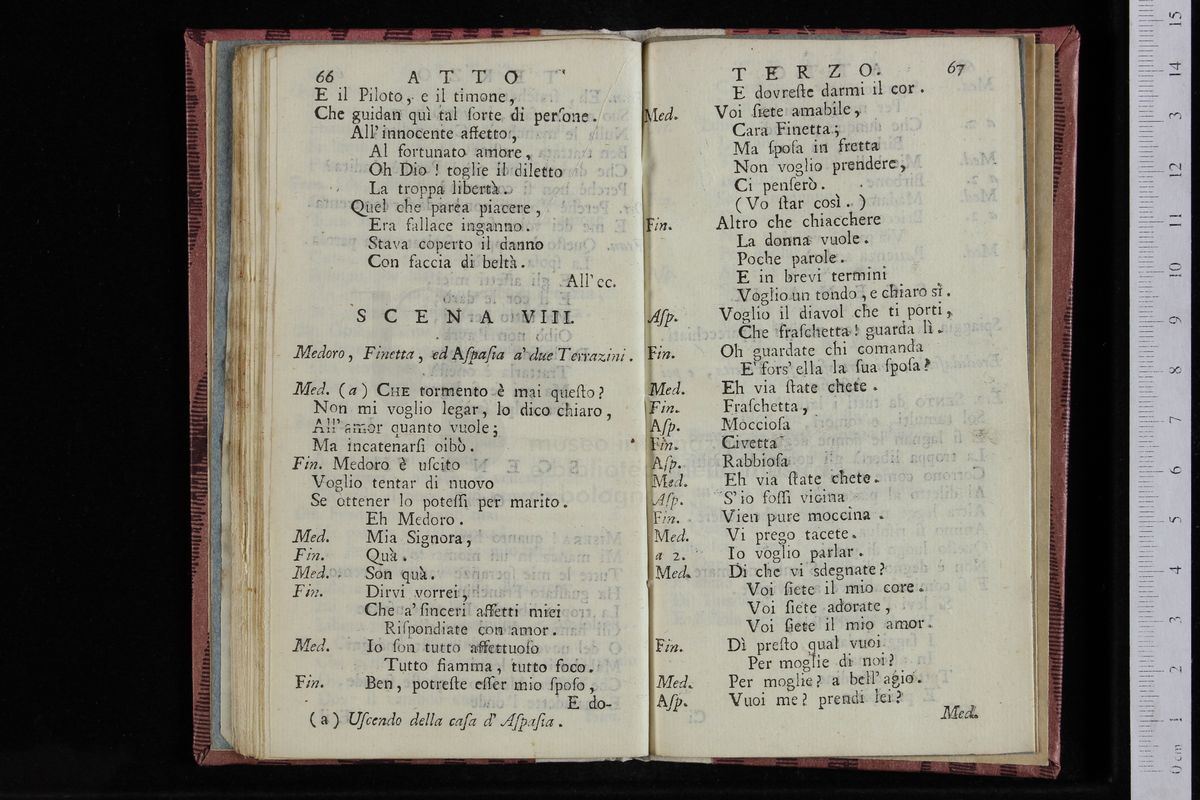 66 ATTO
E il Piloto, e il timone,
Che guidan quì tal ſorte di perſone.
All'innocente affetto,
Al fortunato amore,
Oh Dio ! toglie il diletto
La troppa libertà.
Quel che parea piacere,
Era fallace inganno.
Stava coperto il danno
Con faccia di beltà.
All'ec.
SCENA VIII.
Medoro, Finetta, ed Aſpaſia a' due Terrazini.
Med. (a) CHE tormento è mai queſto?
Non mi voglio legar, lo dico chiaro,
All'amor quanto vuole;
Ma incatenarſi oibò.
Fin. Medoro è uſcito
Voglio tentar di nuovo
Se ottener lo poteſſi per marito.
Eh Medoro.
Med. Mia Signora,
Fin. Quà.
Med. Son quà.
Fin. Dirvi vorrei,
Che a' ſinceri affetti miei
Riſpondiate con amor.
Med. Io ſon tutto affettuoſo
Tutto fiamma, tutto foco.
Fin. Ben, potreſte eſſer mio ſpoſo,
E do-
(a) Uſcendo della caſa d' Aſpaſia.
TERZO. 67
E dovreſte darmi il cor.
Med. Voi ſiete amabile,
Cara Finetta;
Ma ſpoſa in fretta
Non voglio prendere,
Ci penſerò.
(Vo ſtar così.)
Fin. Altro che chiacchere
La donna vuole.
Poche parole.
E in brevi termini
Voglio un tondo, e chiaro sì.
Aſp. Voglio il diavol che ti porti,
Che fraſchetta! guarda lì.
Fin. Oh guardate chi comanda
E' fors' ella la ſua ſpoſa?
Med. Eh via ſtate chete.
Fin. Fraſchetta,
Aſp. Moccioſa
Fin. Civetta
Aſp. Rabbioſa
Med. Eh via ſtate chete.
Aſp. S'io foſſi vicina
Fin. Vien pure moccina.
Med. Vi prego tacete.
a 2. Io voglio parlar.
Med. Di che vi sdegnate?
Voi ſiete il mio core.
Voi ſiete adorate,
Voi ſiete il mio amor.
Fin. Dì preſto qual vuoi
Per moglie di noi?
Med. Per moglie? a bell'agio.
Aſp. Vuoi me? prendi lei?
Med.